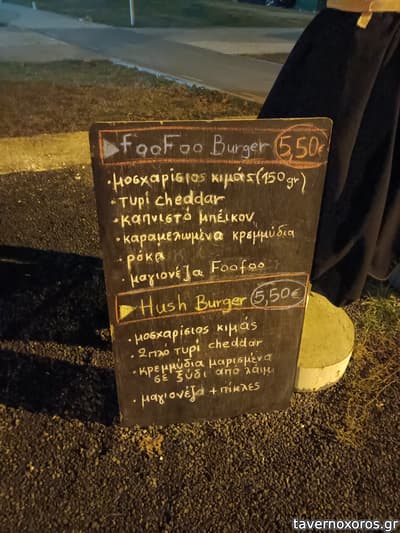 FooFoo Burger 5,50€
• μοσχαρίσιος κιμάς (150gr)
• τυρί cheddar
• καπνιστό μπέικον
• καραμελωμένα κρεμμύδια
• ρόκα
• μαγιονέζα Foofoo
Hush Burger 5,50€
• μοσχαρίσιος κιμάς
• 2πλο τυρί cheddar
• κρεμμύδια μαρισμένα
σε ξύδι από λάιμ
• μαγιονέζα + πίκλες
tavernoxoros.gr